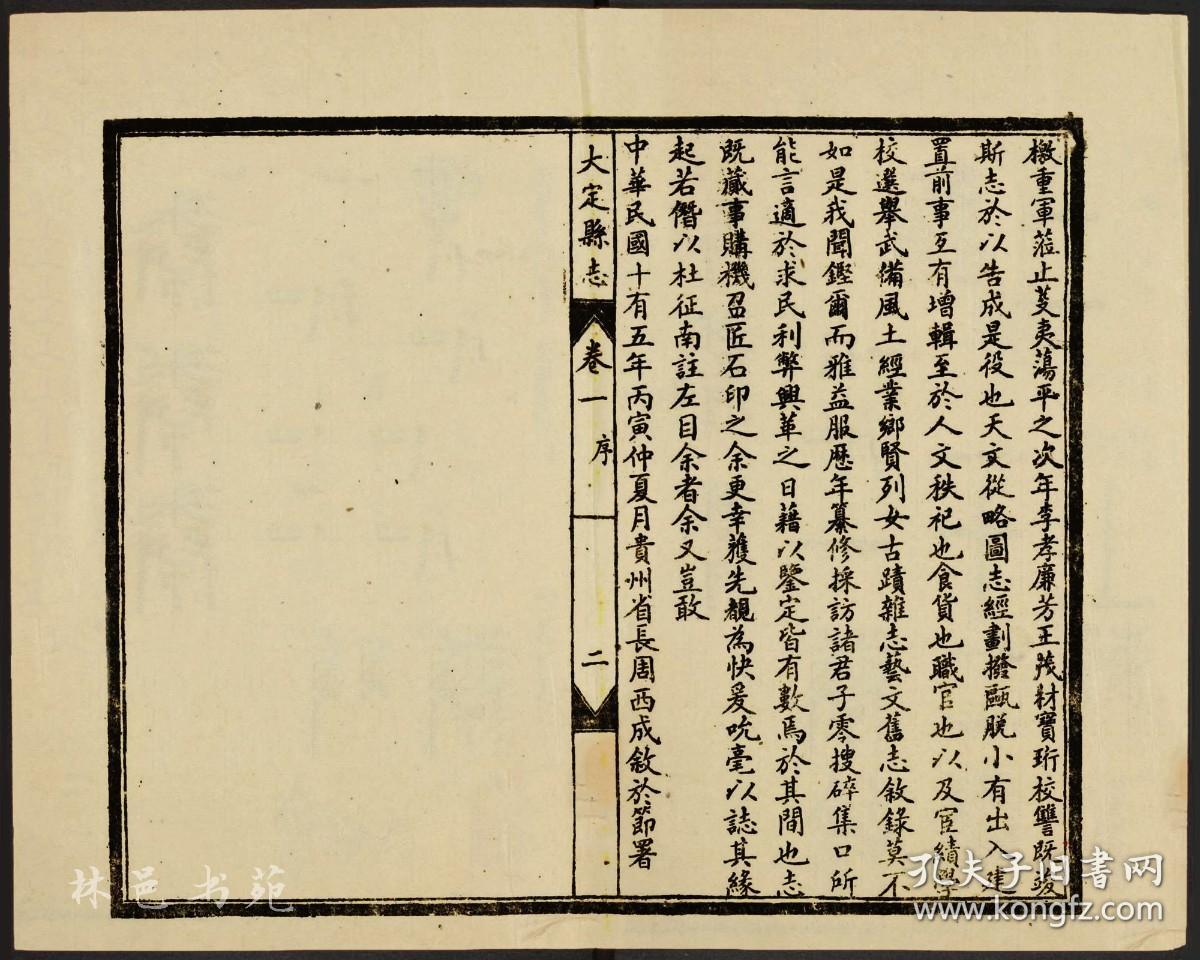 檄重軍蒞止芟夷蕩平之次年李孝廉芳王茂材寶珩校讐既竣
斯志於以告成是役也天文從略圖志經劃撥甌脫小有出入建
置前事互有增輯至於人文秩祀也食貨也職官也以及宦績學
校選舉武備風土經業鄉賢列女古蹟雜志藝文舊志敘錄莫不
如是我聞鏗爾而雅益服歷年纂修採訪諸君子零搜碎集口所
能言適於求民利弊興革之日藉以鑒定皆有數焉於其間也志
既蕆事購機召匠石印之余更幸獲先覩為快爰吮毫以誌其緣
起若僭以杜征南註左目余者余又豈敢
中華民國十有五年丙寅仲夏月貴州省長周西成敘於節署
大定縣志
卷一
序
二
林邑书苑
孔夫子旧书网
www.kongfz.com